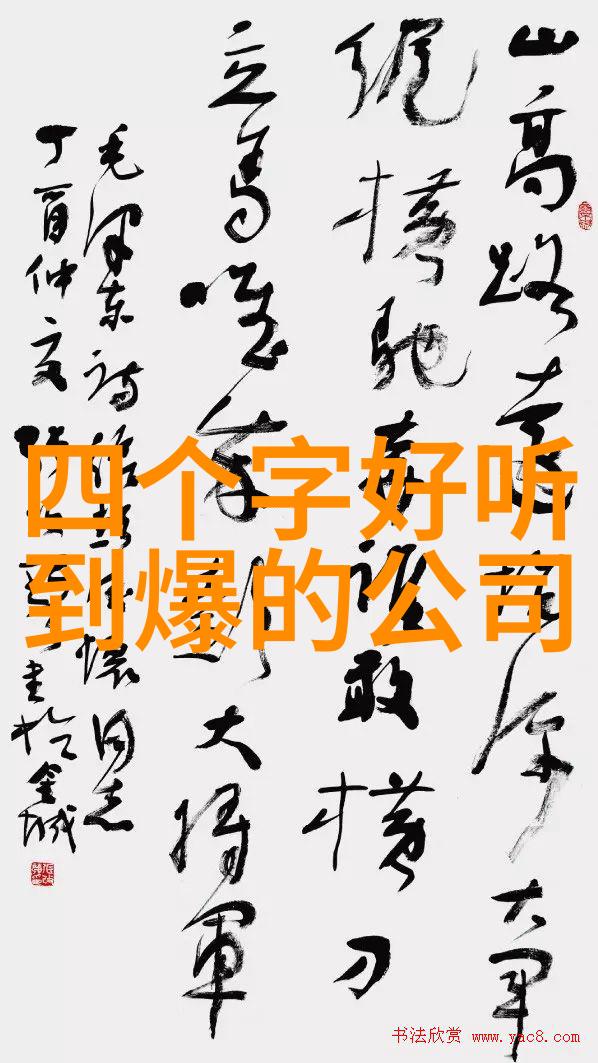 山高路遠坑深大军
纵横驰奔谁敢横刀
立马唯我彭大将軍
毛泽东诗给彭德怀同志
丁酉仲夏书於金城
四个字好听
到爆的公司
书法欣赏 www.yac8.com